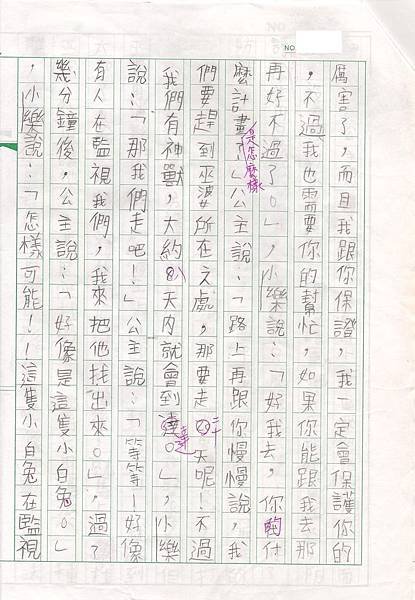 NO.
厲害了，而且我跟你保證，我一定會保護你的
，不過我也需要你的幫忙，如果你能跟我去那
再好不過了。」，小樂說：「好我去，你的什
麼計畫是怎麼樣」公主說：「路上再跟你慢慢說，我
們要趕到巫婆所在之處，那要走二十天呢！不過
我們有神獸，大約八天內就會到達。」，小樂
說：「那我們走吧！」公主說：「等等！好像
有人在監視我們，我來把他找出來。」，過了
幾分鐘後，公主說：「好像是這隻小白兔。」
，小樂說：「怎樣可能！！這隻小白兔在監視